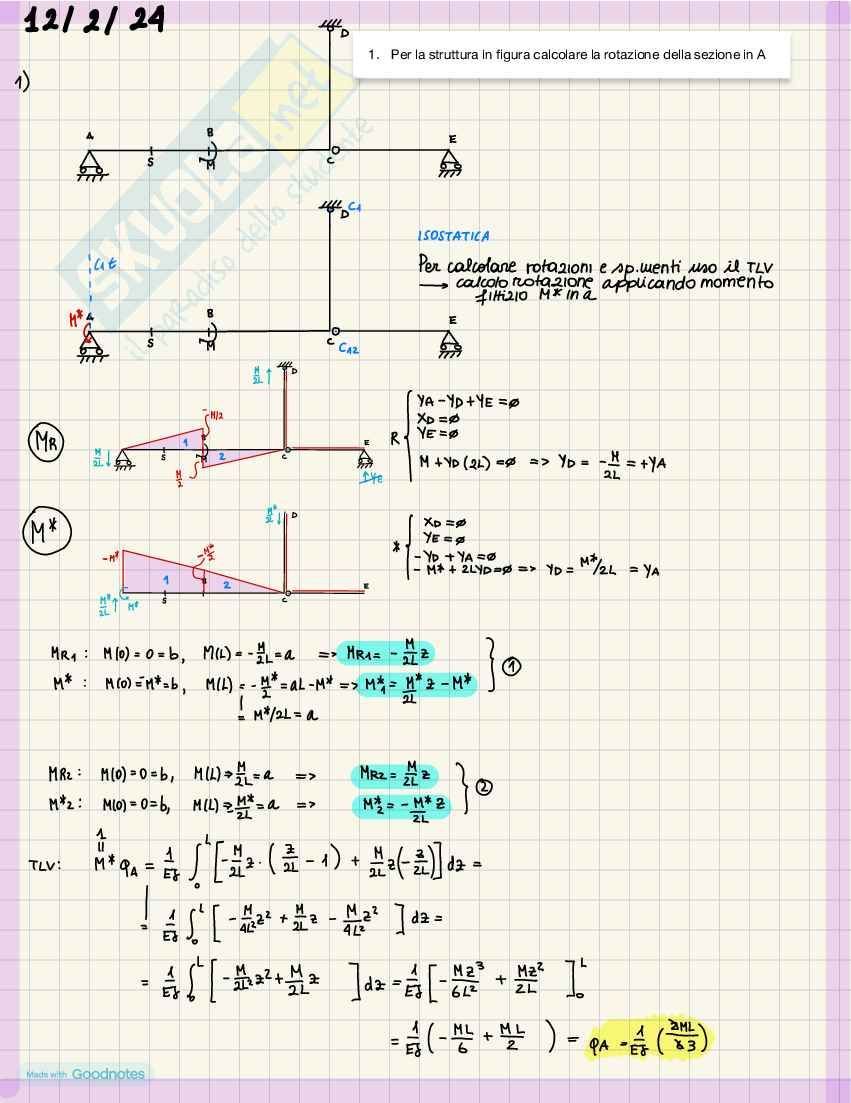 12/2/24
1. Per la struttura in figura calcolare la rotazione della sezione in A
1)
D
A B E
S M C
SKUOLA.net
il paradiso dello studente
D C1
ISOSTATICA
Per calcolare rotazioni e sp.menti uso il TLV
→ calcolo rotazione applicando momento
fittizio M* in a
M* A B E
S M C
C12
M/2L ↑ D
MR
-M/2
M/2L ↓ 1 S M 2 C E
M/2
↑YE
R { YA - YD + YE = ∅
XD = ∅
YE = ∅
M + YD (2L) = ∅ => YD = -M/2L = +YA
M*
M*/2L ↓ D
-M* -M*/2
1 2
M*/2L ↑ M* S C E
* { XD = ∅
YE = ∅
-YD + YA = ∅
- M* + 2LYD = ∅ => YD = M*/2L = YA
MR1: M(0) = 0 = b, M(L) = -M/2L = a => MR1 = -M/2L z
M*: M(0) = -M* = b, M(L) = -M*/2 = aL - M* => M*1 = M*/2L z - M* } ①
= M*/2L = a
MR2: M(0) = 0 = b, M(L) => M/2L = a => MR2 = M/2L z
M*2: M(0) = 0 = b, M(L) = -M*/2L = a => M*2 = -M*/2L z } ②
1
=
TLV: M* φA = 1/EJ ∫₀ᴸ [-M/2L z · (z/2L - 1) + M/2L z (-z/2L)] dz =
= 1/EJ ∫₀ᴸ [-M/4L² z² + M/2L z - M/4L² z²] dz =
= 1/EJ ∫₀ᴸ [-M/2L² z² + M/2L z] dz = 1/EJ [-Mz³/6L² + Mz²/2L]₀ᴸ
= 1/EJ (-ML/6 + ML/2) = φA = 1/EJ (2ML/6 3)
Made with Goodnotes